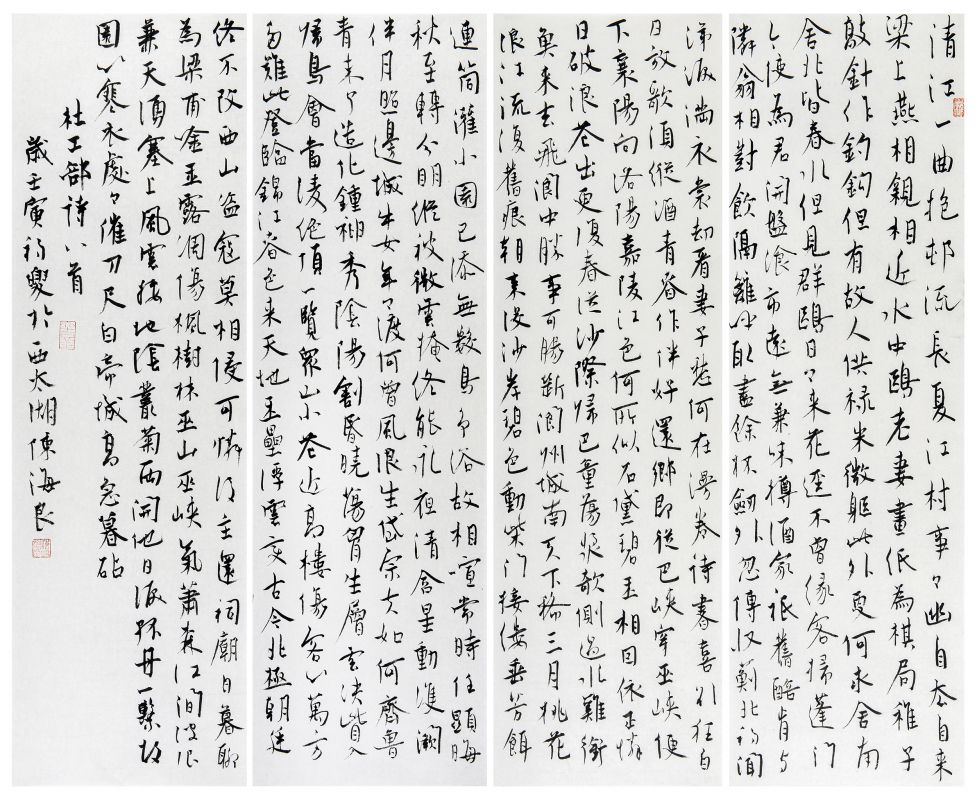 清江一曲抱邨流長夏江村事々幽自去自来
梁上燕相親相近水中鷗老妻畫紙為棋局稚子
敲針作釣鉤但有故人供祿米微軀此外更何求舍南
舍北皆春水但見群鷗日々来花徑不曾緣客掃蓬門
今始為君開盤飧市遠無兼味樽酒家祗舊醅肯与
鄰翁相對飲隔籬呼取盡餘杯劍外忽傳收薊北初聞
涕淚滿衣裳却看妻子愁何在漫卷詩書喜欲狂白
日放歌須縱酒青春作伴好還鄉即從巴峽穿巫峽便
下襄陽向洛陽嘉陵江色何所似石黛碧玉相因依正憐
日破浪花出更復春從沙際歸巴童蕩槳欹側過水雞銜
魚来去飛閬中勝事可腸斷閬州城南天下稀三月桃花
浪江流復舊痕朝来沒沙岸碧色動柴門接縷垂芳餌
連筒灌小園已添無數鳥爭浴故相喧常時任顯晦
秋至轉分明縱被微雲掩終能永夜清含星動雙闕
伴月照邊城牛女年々渡何曾風浪生岱宗夫如何齊魯
青未了造化鍾神秀陰陽割昏曉蕩胸生層雲決眥入
歸鳥會當凌絕頂一覽眾山小花近高樓傷客心萬方
多難此登臨錦江春色来天地玉壘浮雲變古今北極朝廷
終不改西山盜寇莫相侵可憐後主還祠廟日暮聊
為梁甫吟玉露凋傷楓樹林巫山巫峽氣蕭森江間波浪
兼天湧塞上風雲接地陰叢菊兩開他日淚孤舟一繫故
園心寒衣處々催刀尺白帝城高急暮砧
杜工部詩八首
歲壬寅初夏於西太湖陳海良